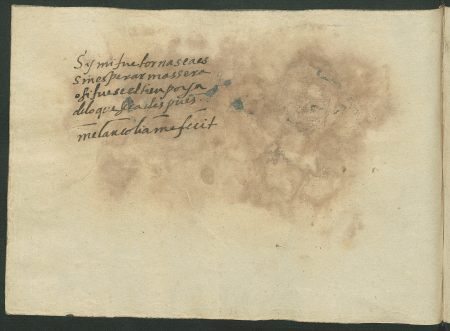 Sy mi fue tornase a es
sin esperar mas sera
o si fuese el tienpo ya
de lo que sera despues
melancolia me fecit